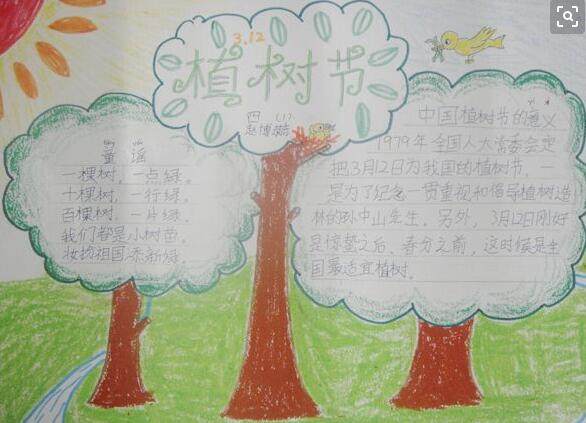 3.12
植树节
四（1）
童谣
一棵树，一点绿。
十棵树，一行绿。
百棵树，一片绿。
我们都是小树苗，
妆扮祖国添新绿。
中国植树节的意义
1979年全国人大常委会定
把3月12日为我国的植树节，一
是为了纪念一贯重视和倡导植树造
林的孙中山先生。另外，3月12日刚好
是惊蛰之后，春分之前，这时候是全
国最适宜植树。